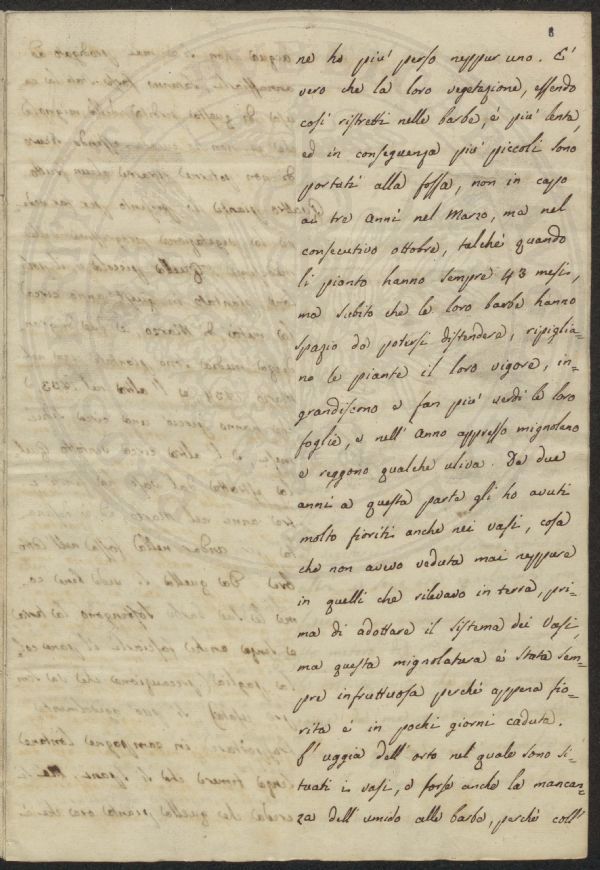 8
ne ho piu' perso neppur uno. E'
vero che la loro vegetazione, essendo
così ristretti nelle barbe, è piu' lenta,
ed in conseguenza piu' piccoli sono
portati alla fossa, non in capo
ai tre anni nel Marzo, ma nel
consecutivo ottobre, talchè quando
li pianto hanno sempre 43 mesi,
ma subito che le loro barbe hanno
spazio da potersi distendere, ripiglia-
no le piante il loro vigore, in-
grandiscono e fan piu' verdi le loro
foglie, e nell' anno appresso mignolano
e reggono qualche uliva. Da due
anni a questa parte gli ho avuti
molto fioriti anche nei vasi, cosa
che non avevo veduta mai neppure
in quelli che rilevavo in terra, pri-
ma di adottare il sistema dei vasi,
ma questa mignolatura è stata sem-
pre infruttuosa perchè appena fio-
rita è in pochi giorni caduta.
L' uggia dell' orto nel quale sono si-
tuati i vasi, e forse anche la mancan-
za dell' umido alle barbe, perchè coll'